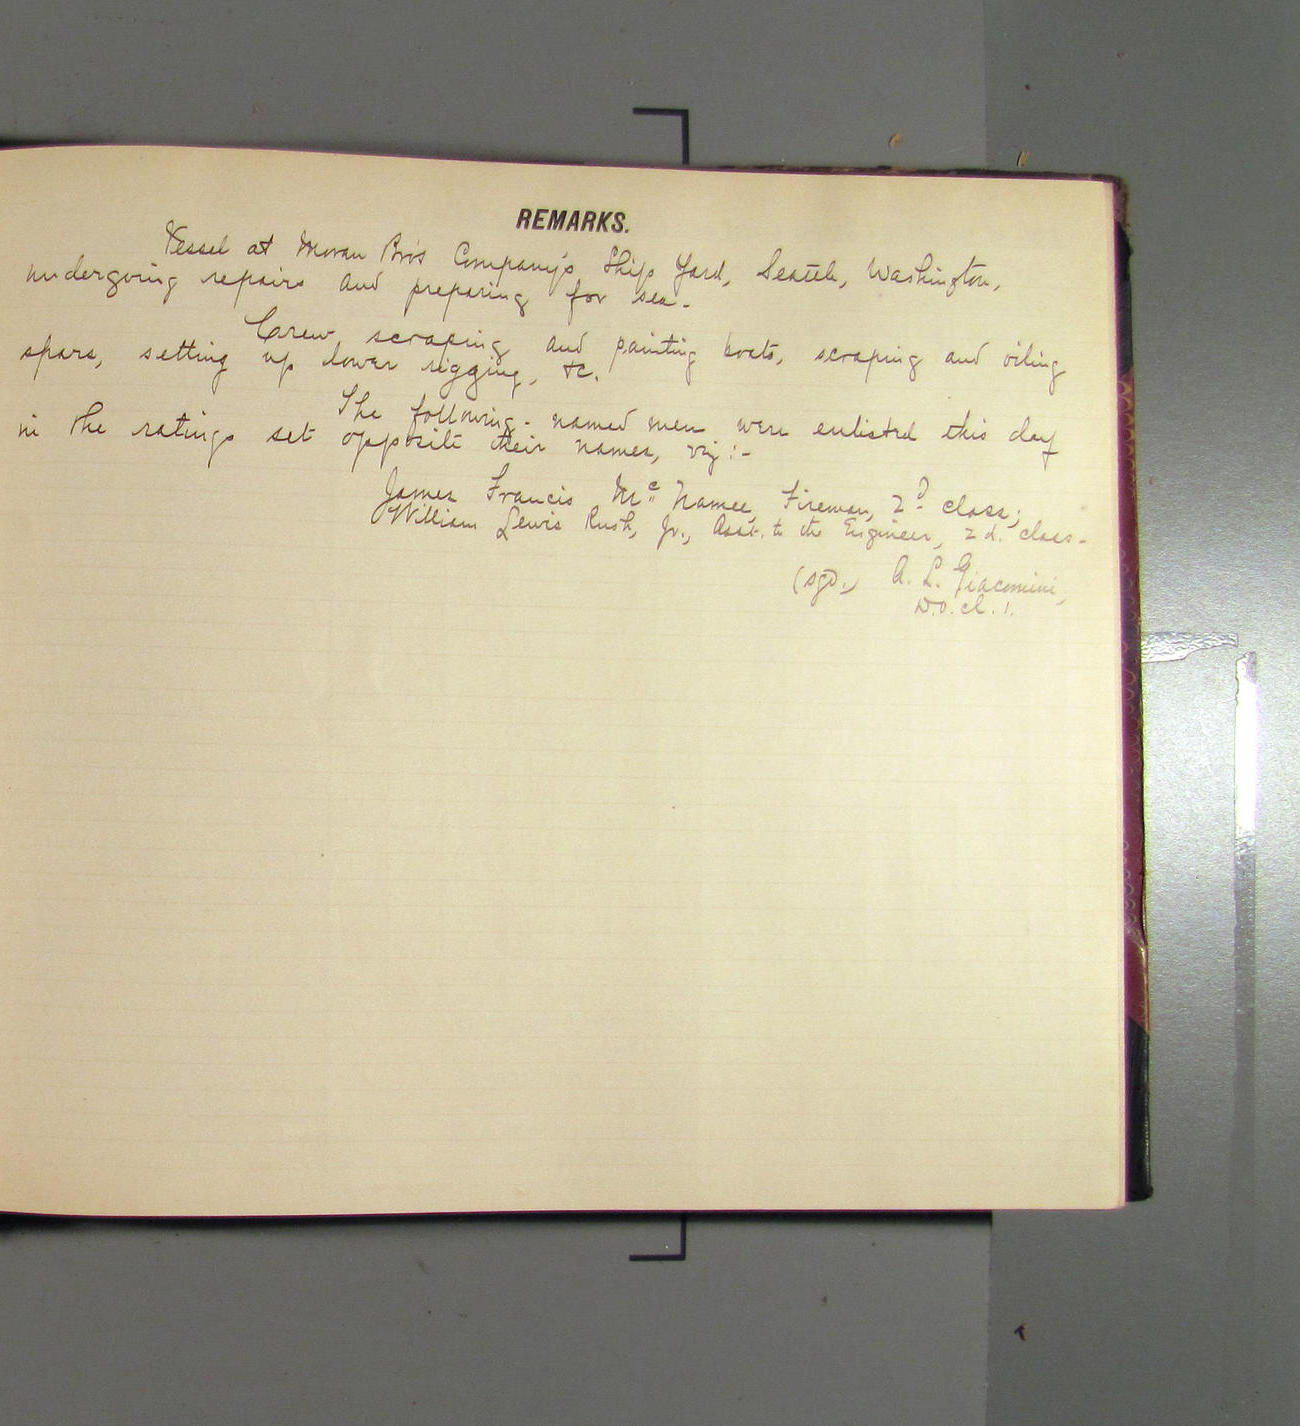 REMARKS.
Vessel at Moran Bros Company's Ship Yard, Seattle, Washington,
undergoing repairs and preparing for sea.
Crew scraping and painting boats, scraping and oiling
spars, setting up lower rigging, &c.
The following-named men were enlisted this day
in the ratings set opposite their names, viz:-
James Francis McNamee, Fireman, 2d class;
William Lewis Rush, Jr., Asst. to the Engineer, 2d. class.
(sgd.) A. L. Giacomini,
W.O. cl. 1.